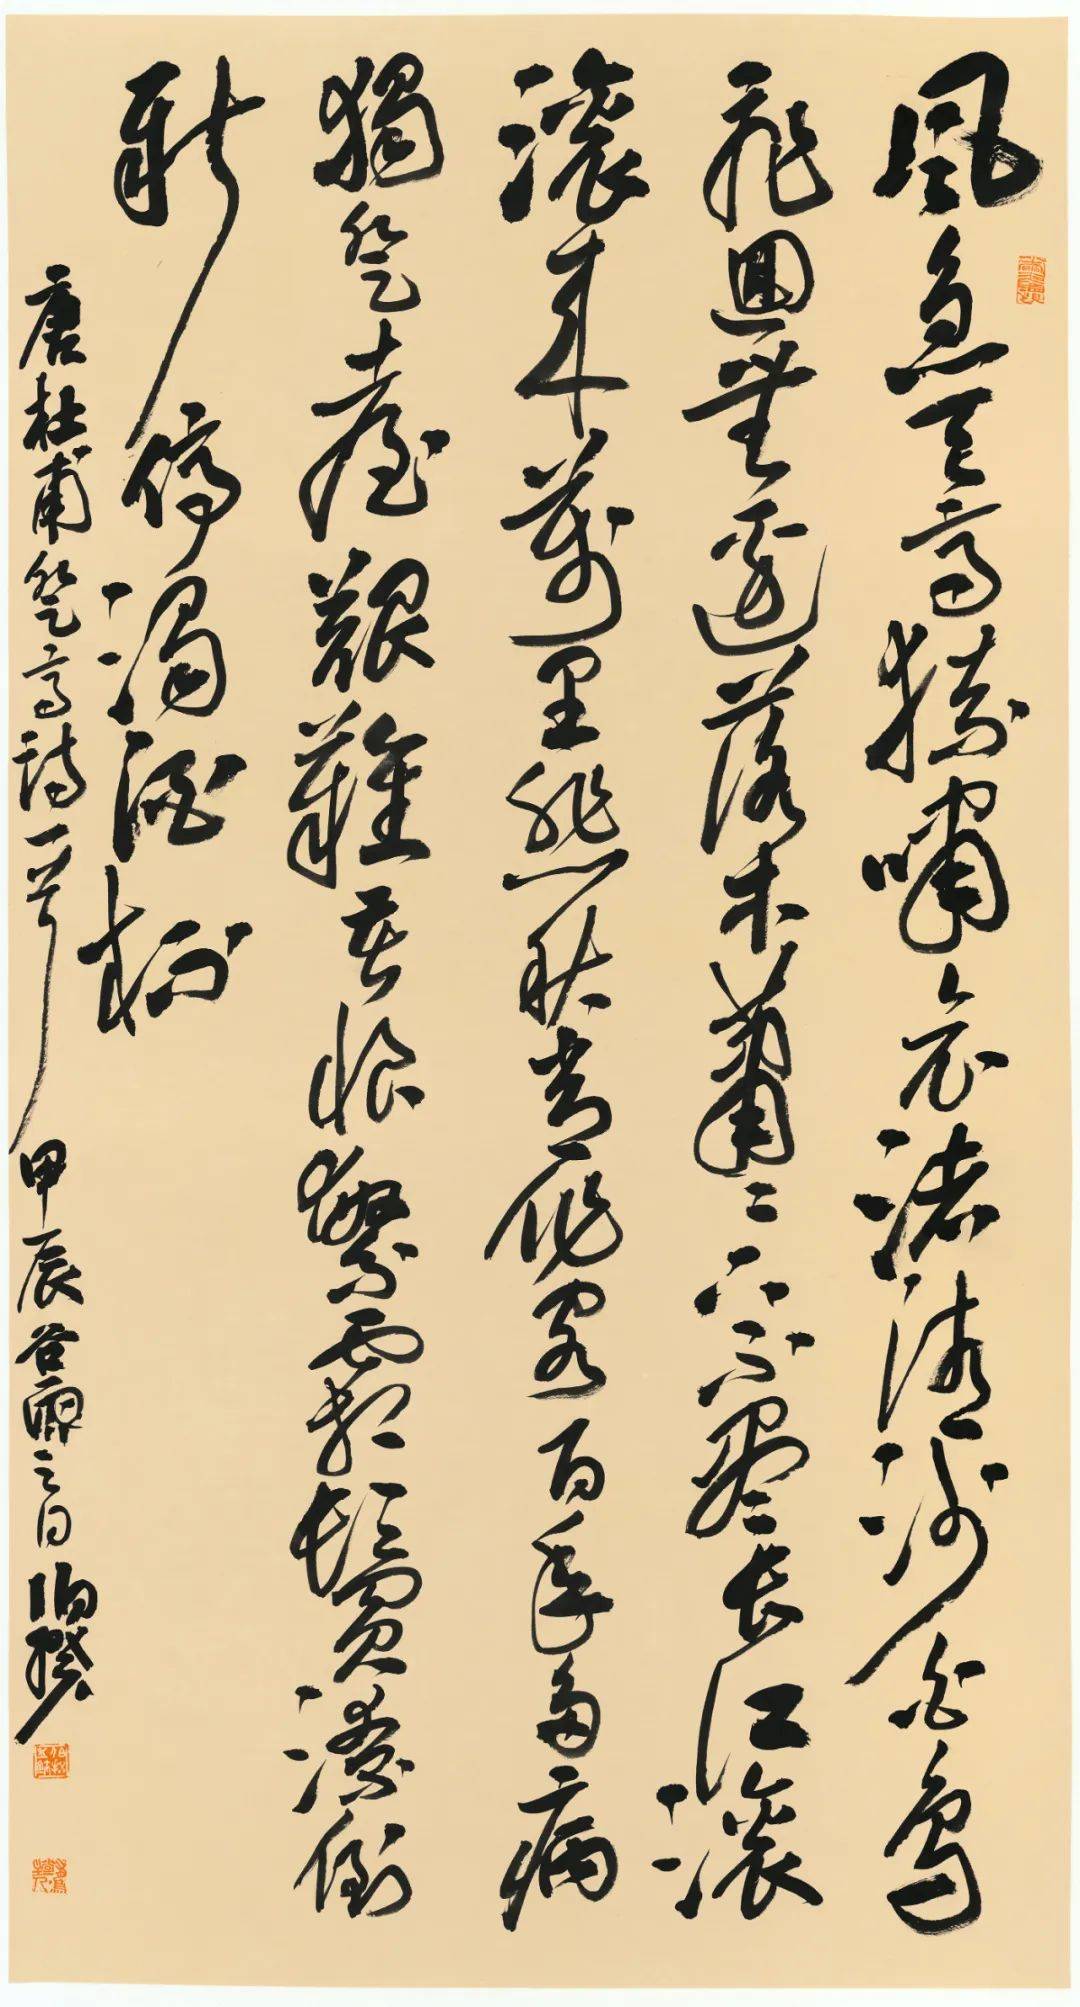 風急天高猿嘯哀渚清沙白鳥
飛迴無邊落木蕭〻下不盡長江滚
滚來萬里悲秋常作客百年多病
獨登臺艱難苦恨繁霜鬢潦倒
新停濁酒杯
唐杜甫登高詩一首 甲辰谷雨之日 伯揆